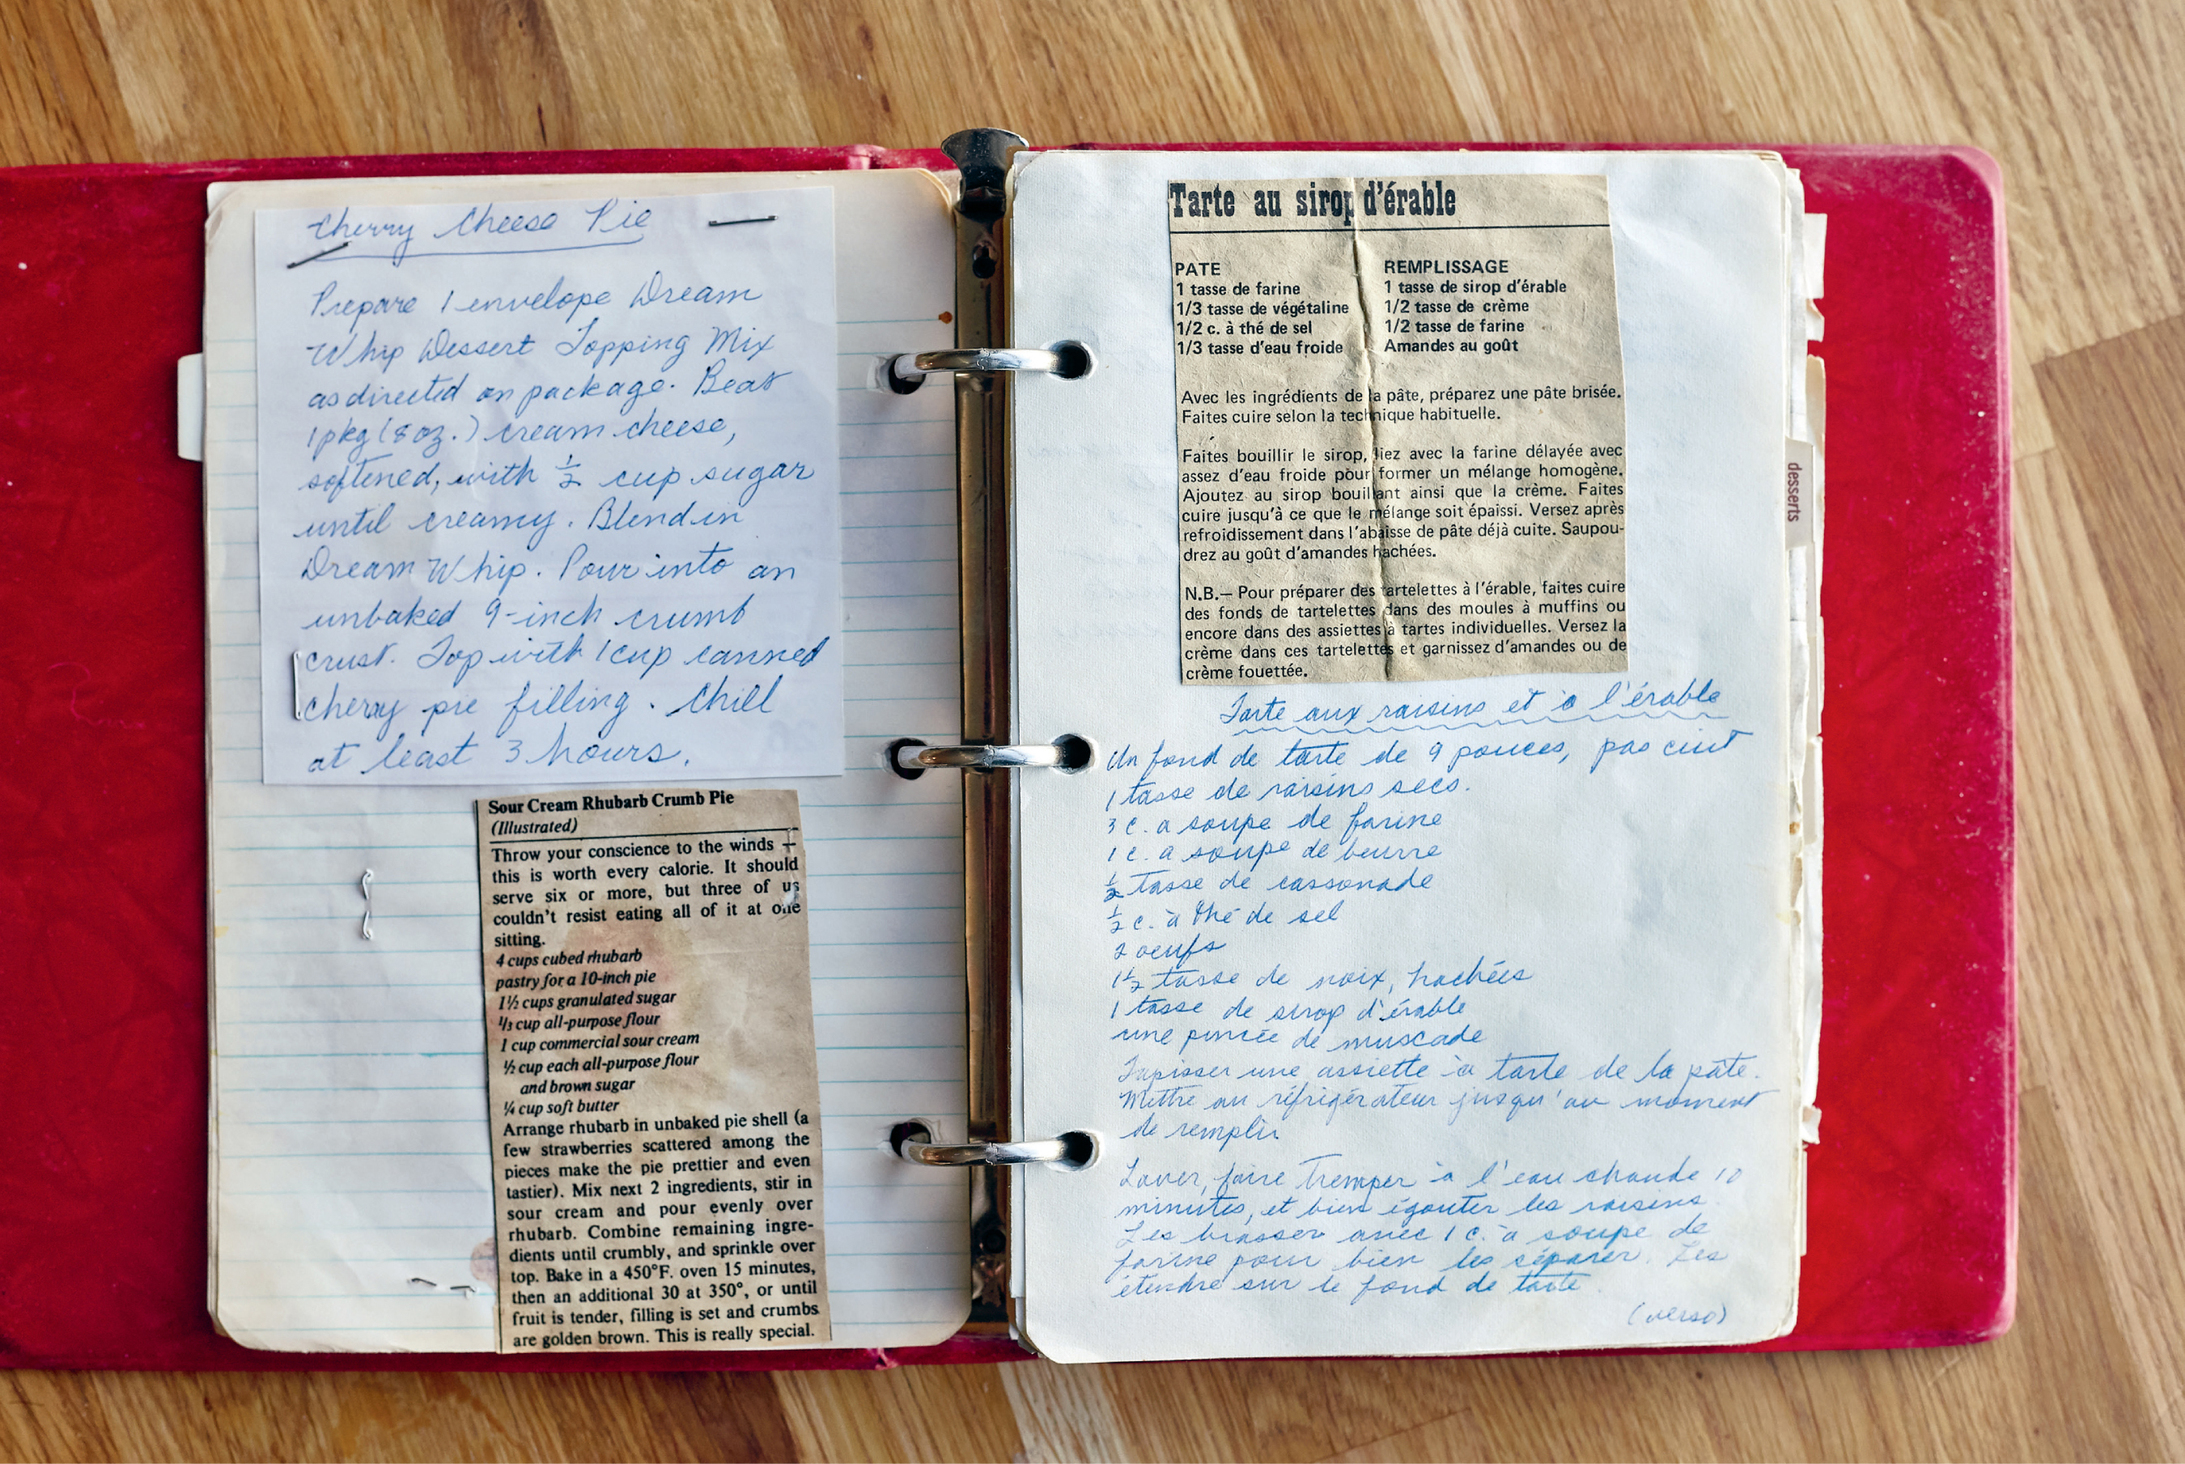 Cherry Cheese Pie
Prepare 1 envelope Dream
Whip Dessert Topping Mix
as directed on package. Beat
1 pkg (8 oz.) cream cheese,
softened, with ½ cup sugar
until creamy. Blend in
Dream Whip. Pour into an
unbaked 9-inch crumb
crust. Top with 1 cup canned
cherry pie filling. Chill
at least 3 hours.
Sour Cream Rhubarb Crumb Pie
(Illustrated)
Throw your conscience to the winds —
this is worth every calorie. It should
serve six or more, but three of us
couldn't resist eating all of it at one
sitting.
4 cups cubed rhubarb
pastry for a 10-inch pie
1½ cups granulated sugar
⅓ cup all-purpose flour
1 cup commercial sour cream
½ cup each all-purpose flour
and brown sugar
¼ cup soft butter
Arrange rhubarb in unbaked pie shell (a
few strawberries scattered among the
pieces make the pie prettier and even
tastier). Mix next 2 ingredients, stir in
sour cream and pour evenly over
rhubarb. Combine remaining ingre-
dients until crumbly, and sprinkle over
top. Bake in a 450°F. oven 15 minutes,
then an additional 30 at 350°, or until
fruit is tender, filling is set and crumbs
are golden brown. This is really special.
Tarte au sirop d'érable
PATE
1 tasse de farine
1/3 tasse de végétaline
1/2 c. à thé de sel
1/3 tasse d'eau froide
REMPLISSAGE
1 tasse de sirop d'érable
1/2 tasse de crème
1/2 tasse de farine
Amandes au goût
Avec les ingrédients de la pâte, préparez une pâte brisée.
Faites cuire selon la technique habituelle.
Faites bouillir le sirop, liez avec la farine délayée avec
assez d'eau froide pour former un mélange homogène.
Ajoutez au sirop bouillant ainsi que la crème. Faites
cuire jusqu'à ce que le mélange soit épaissi. Versez après
refroidissement dans l'abaisse de pâte déjà cuite. Saupou-
drez au goût d'amandes hachées.
N.B.— Pour préparer des tartelettes à l'érable, faites cuire
des fonds de tartelettes dans des moules à muffins ou
encore dans des assiettes à tartes individuelles. Versez la
crème dans ces tartelettes et garnissez d'amandes ou de
crème fouettée.
Tarte aux raisins et à l'érable
Un fond de tarte de 9 pouces, pas cuit
1 tasse de raisins secs.
3 c. a soupe de farine
1 c. a soupe de beurre
½ tasse de cassonade
½ c. à thé de sel
2 oeufs
1½ tasse de noix, hachées
1 tasse de sirop d'érable
une pincée de muscade
Tapisser une assiette à tarte de la pâte.
Mettre au réfrigérateur jusqu'au moment
de remplir
Laver, faire tremper à l'eau chaude 10
minutes, et bien égoutter les raisins.
Les brasser avec 1 c. à soupe de
farine pour bien les séparer. Les
étendre sur le fond de tarte.
(verso)
desserts